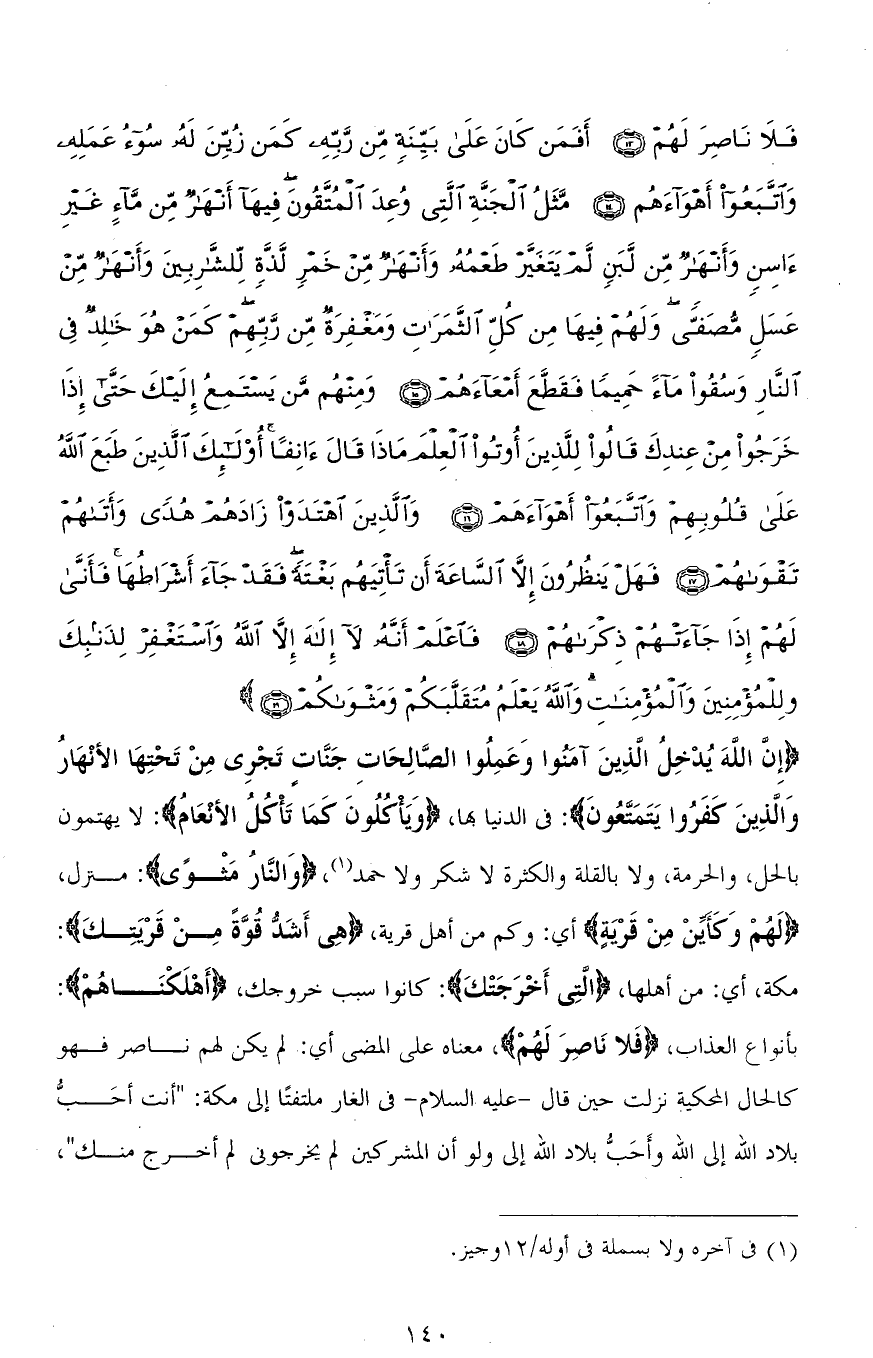 فَلَا نَاصِرَ لَهُمْ ١٣ أَفَمَن كَانَ عَلَىٰ بَيِّنَةٍ مِّن رَّبِّهِۦ كَمَن زُيِّنَ لَهُۥ سُوٓءُ عَمَلِهِۦ
وَٱتَّبَعُوٓا۟ أَهْوَآءَهُم ١٤ مَّثَلُ ٱلْجَنَّةِ ٱلَّتِى وُعِدَ ٱلْمُتَّقُونَ ۖ فِيهَآ أَنْهَٰرٌ مِّن مَّآءٍ غَيْرِ
ءَاسِنٍ وَأَنْهَٰرٌ مِّن لَّبَنٍ لَّمْ يَتَغَيَّرْ طَعْمُهُۥ وَأَنْهَٰرٌ مِّنْ خَمْرٍ لَّذَّةٍ لِّلشَّٰرِبِينَ وَأَنْهَٰرٌ مِّنْ
عَسَلٍ مُّصَفًّى ۖ وَلَهُمْ فِيهَا مِن كُلِّ ٱلثَّمَرَٰتِ وَمَغْفِرَةٌ مِّن رَّبِّهِمْ ۖ كَمَنْ هُوَ خَٰلِدٌ فِى
ٱلنَّارِ وَسُقُوا۟ مَآءً حَمِيمًا فَقَطَّعَ أَمْعَآءَهُمْ ١٥ وَمِنْهُم مَّن يَسْتَمِعُ إِلَيْكَ حَتَّىٰٓ إِذَا
خَرَجُوا۟ مِنْ عِندِكَ قَالُوا۟ لِلَّذِينَ أُوتُوا۟ ٱلْعِلْمَ مَاذَا قَالَ ءَانِفًا ۚ أُو۟لَٰٓئِكَ ٱلَّذِينَ طَبَعَ ٱللَّهُ
عَلَىٰ قُلُوبِهِمْ وَٱتَّبَعُوٓا۟ أَهْوَآءَهُمْ ١٦ وَٱلَّذِينَ ٱهْتَدَوْا۟ زَادَهُمْ هُدًى وَءَاتَىٰهُمْ
تَقْوَىٰهُمْ ١٧ فَهَلْ يَنظُرُونَ إِلَّا ٱلسَّاعَةَ أَن تَأْتِيَهُم بَغْتَةً ۖ فَقَدْ جَآءَ أَشْرَاطُهَا ۚ فَأَنَّىٰ
لَهُمْ إِذَا جَآءَتْهُمْ ذِكْرَىٰهُمْ ١٨ فَٱعْلَمْ أَنَّهُۥ لَآ إِلَٰهَ إِلَّا ٱللَّهُ وَٱسْتَغْفِرْ لِذَنۢبِكَ
وَلِلْمُؤْمِنِينَ وَٱلْمُؤْمِنَٰتِ ۗ وَٱللَّهُ يَعْلَمُ مُتَقَلَّبَكُمْ وَمَثْوَىٰكُمْ ١٩ ﴾
﴿إِنَّ اللَّهَ يُدْخِلُ الَّذِينَ آمَنُوا وَعَمِلُوا الصَّالِحَاتِ جَنَّاتٍ تَجْرِي مِنْ تَحْتِهَا الأَنْهَارُ
وَالَّذِينَ كَفَرُوا يَتَمَتَّعُونَ﴾: فى الدنيا بها، ﴿وَيَأْكُلُونَ كَمَا تَأْكُلُ الأَنْعَامُ﴾: لا يهتمون
بالحل، والحرمة، ولا بالقلة والكثرة لا شكر ولا حمد(١)، ﴿وَالنَّارُ مَثْوًى﴾: منزل،
﴿لَهُمْ وَكَأَيِّنْ مِنْ قَرْيَةٍ﴾ أي: وكم من أهل قرية، ﴿هِي أَشَدُّ قُوَّةً مِنْ قَرْيَتِكَ﴾:
مكة، أي: من أهلها، ﴿الَّتِي أَخْرَجَتْكَ﴾: كانوا سبب خروجك، ﴿أَهْلَكْنَاهُمْ﴾:
بأنواع العذاب، ﴿فَلا نَاصِرَ لَهُمْ﴾، معناه على المضى أي: لم يكن لهم ناصر فهو
كالحال المحكية نزلت حين قال -عليه السلام- فى الغار ملتفتًا إلى مكة: "أنت أحَبُّ
بلاد الله إلى الله وأَحَبُّ بلاد الله إلى ولو أن المشركين لم يخرجونى لم أخرج منك"،
(١) فى آخره ولا بسملة فى أوله/١٢وجيز.
١٤٠